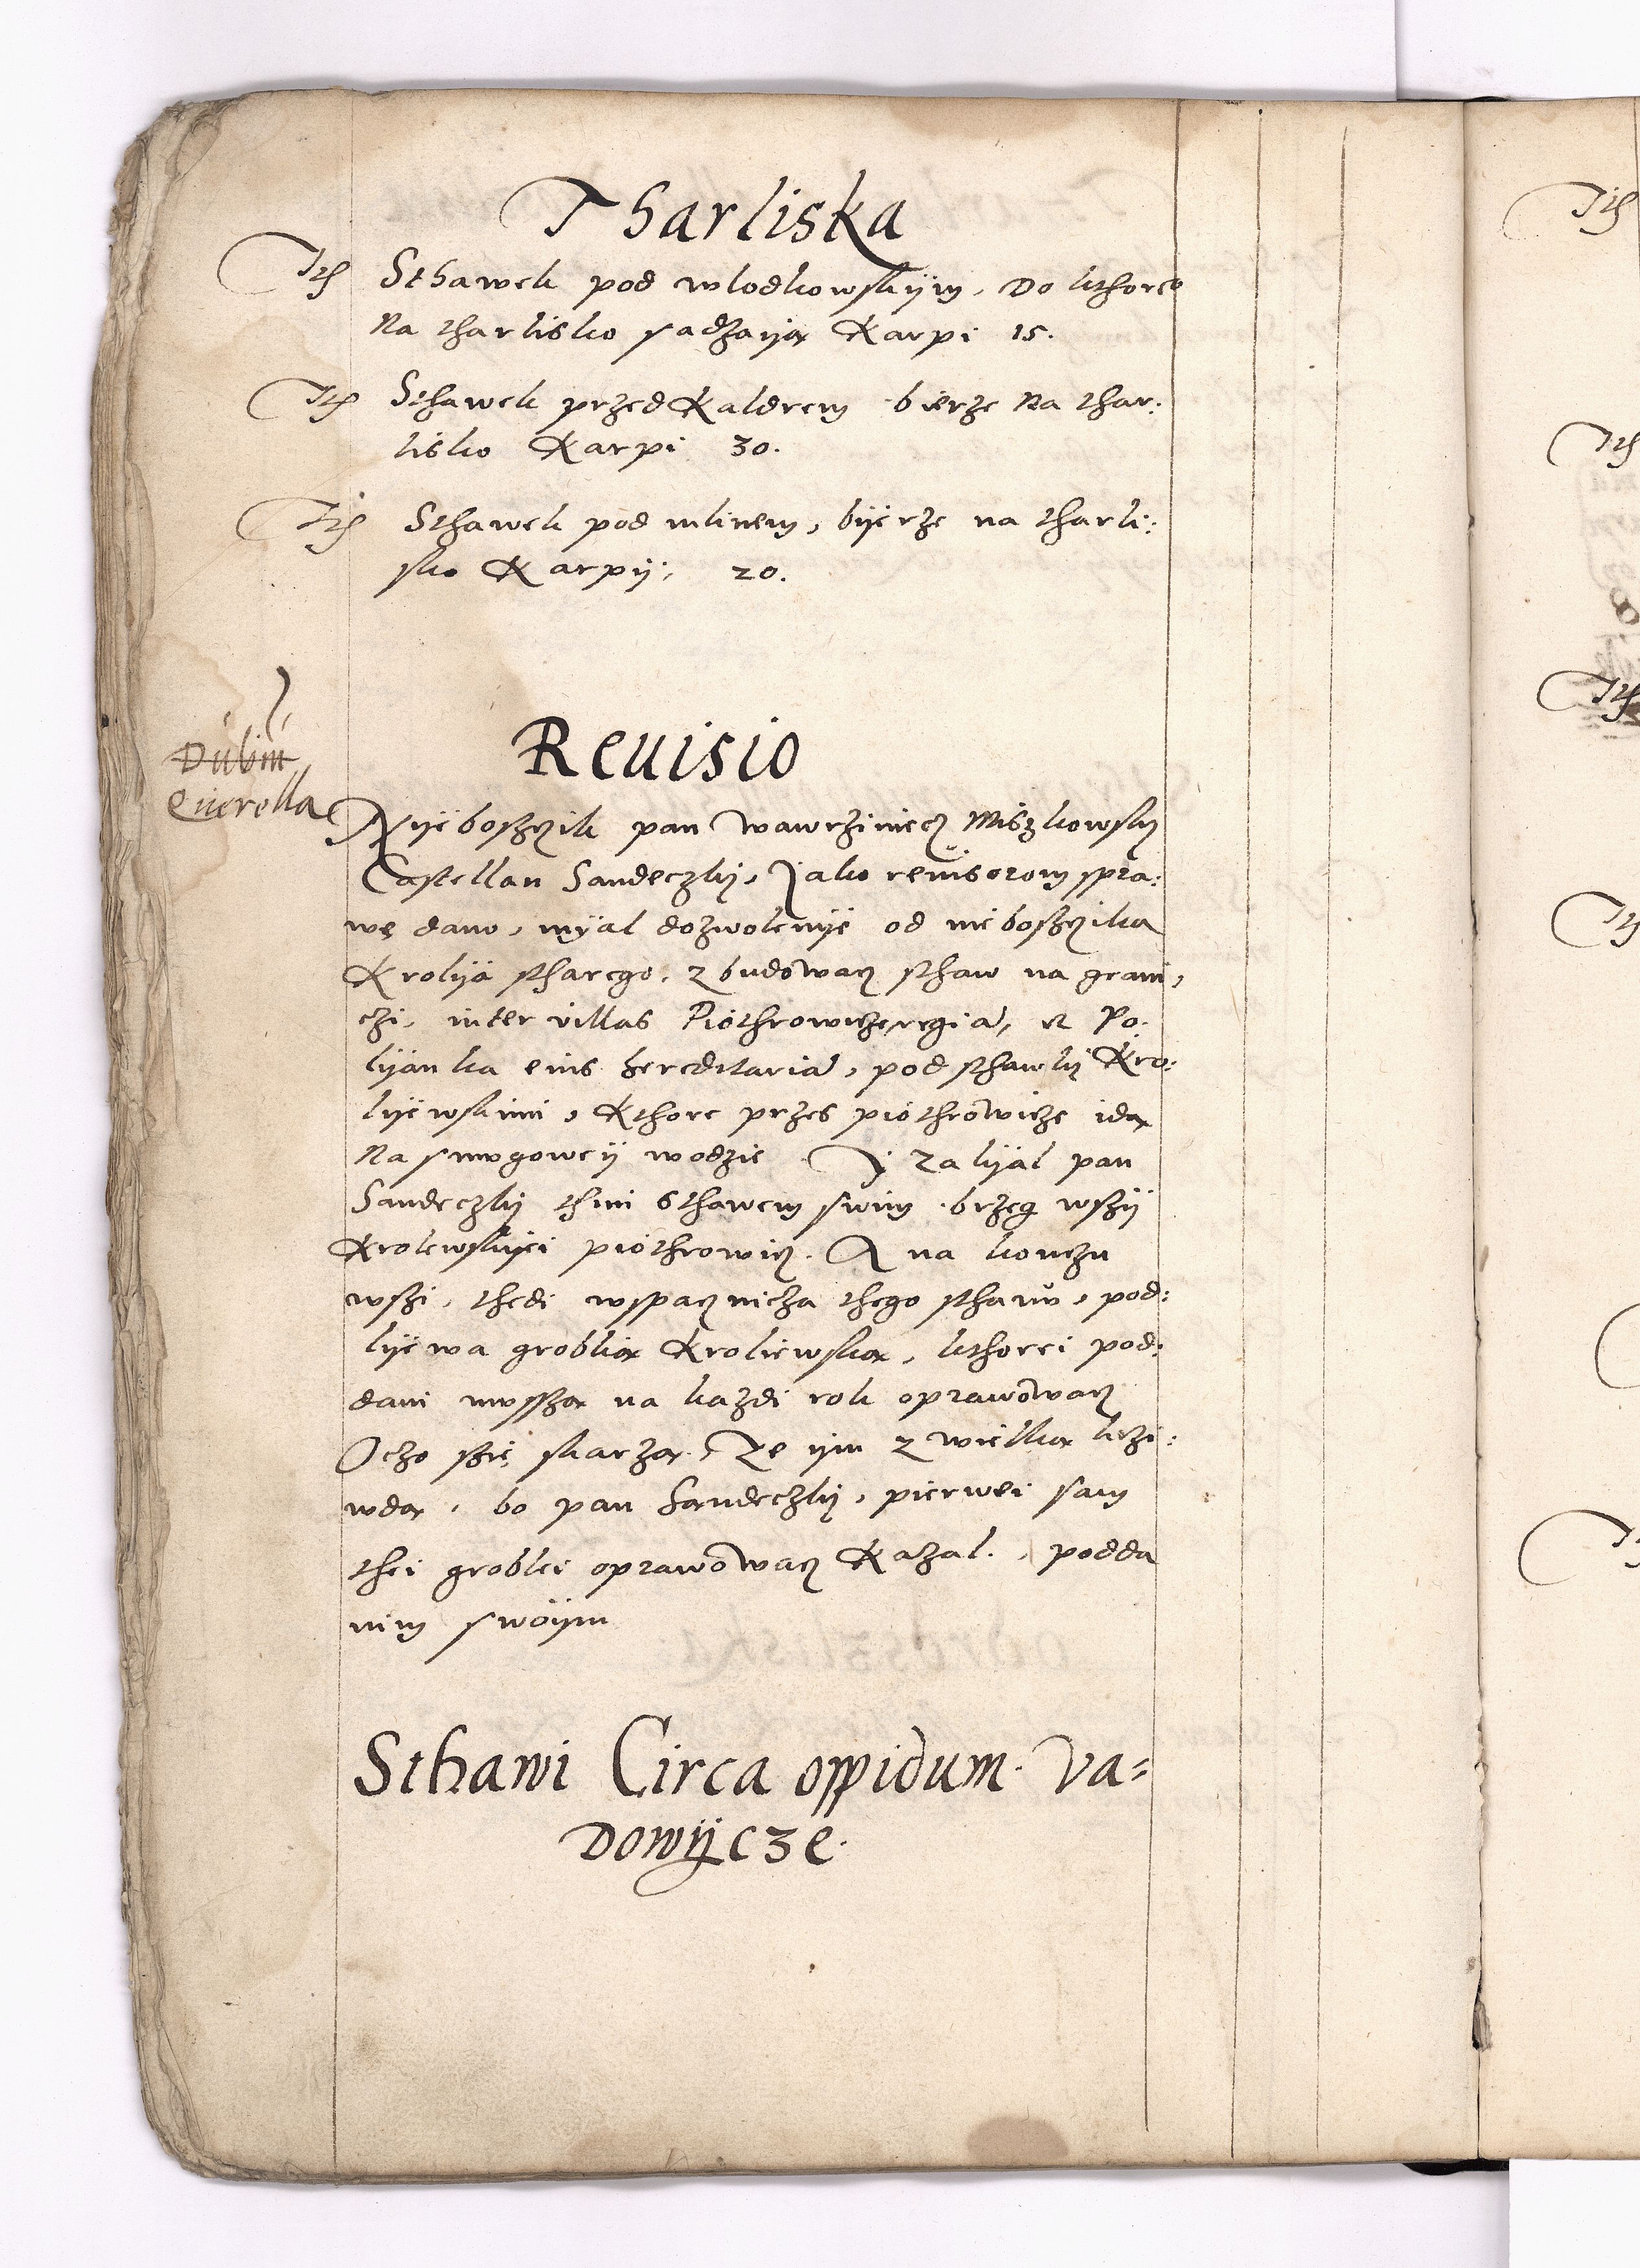 Tharliska
Ith Sthawek pod wlodkowskÿm, Do kthore°
Na tharlisko sadzaÿą Karpi 15.
Ith Sthawek przed Kaldrem bierze Na thar:
lisko Karpi 30.
Ith Sthawek pod mlinem, bÿerze na tharli:
sko Karpÿ, 20.
Reuisio
Dubiu
Querella
Nÿeboszczik pan Wawrziniecz Miszkowskÿ
Castellan Sandeczkÿ, Jako reuisorom spra:
wę dano, mÿal dozwolenÿe od nieboszczika
Krolÿa stharego, zbudowacz sthaw na grani,
czi, inter villas Piothrowicze, regia, et Po.
lÿanka eius hereditaria, pod sthawkÿ Kro:
lÿewskimi, Kthore przes piothrowicze idą
Na snÿegoweÿ wodzie Y Zalÿal pan
Sandeczkÿ thim Sthawem swim brzeg wszÿ
Krolewskÿei piothrowicz. A na konczu
wszi, thedi wspacznicza thego sthawu, pod:
lÿewa groblią Kroliewską, kthorei pod:
dani mvsszą na kazdi rok oprawowacz
Oczo szię skarzą, Ze ÿm z wielką krzi:
wdą, bo pan Sandeczkÿ, pierwei sam
thei groblei oprawowacz Kazal, podda
nim swoÿm
Sthawi Circa oppidum Va=
Dowÿcze.
Ith
Ith
Ith
Ith